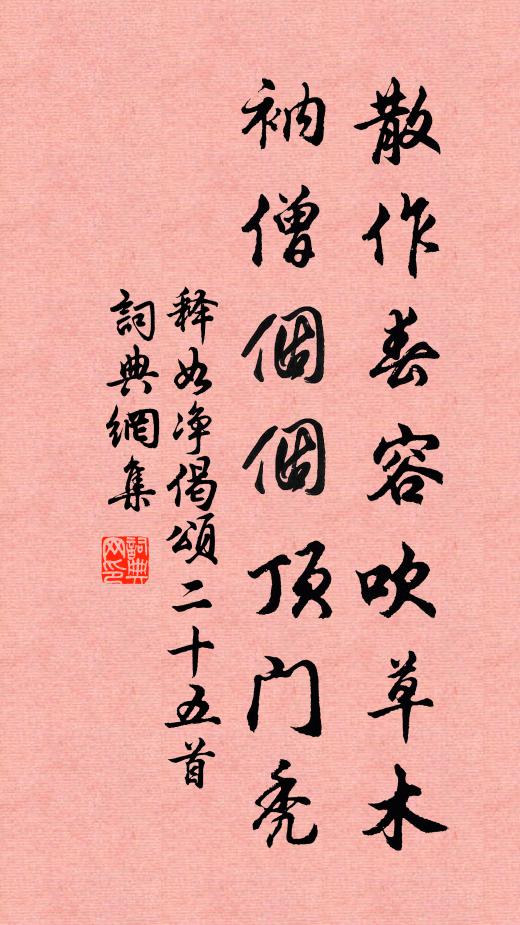 散作春容吹草木
衲僧個個顶门秃
释如净偈頌二十五首
詞典網集
詞典
网印